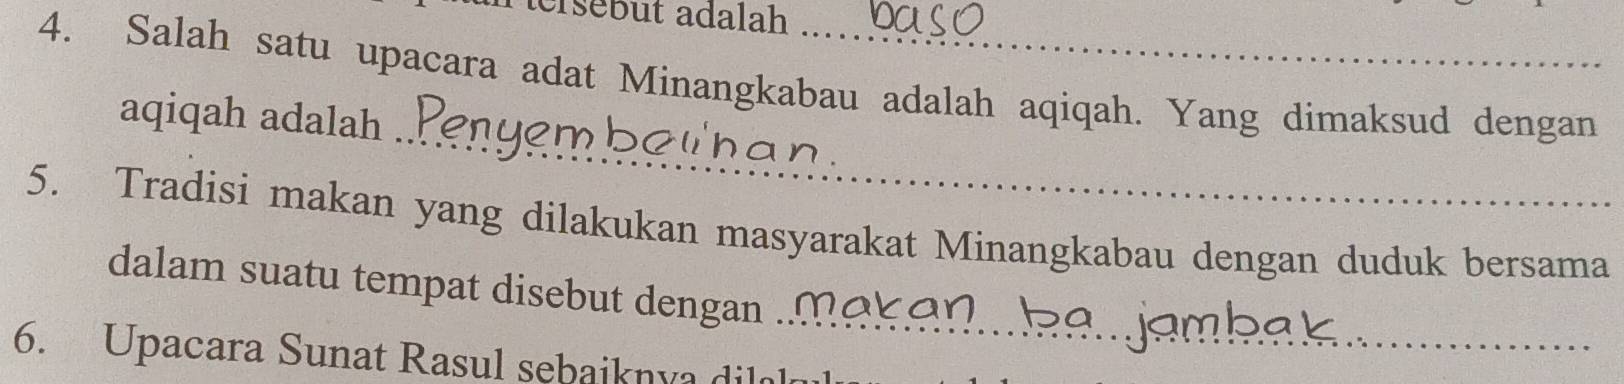 tersebut adalah ..... baso
4. Salah satu upacara adat Minangkabau adalah aqiqah. Yang dimaksud dengan
aqiqah adalah ... Penyembelihan.
5. Tradisi makan yang dilakukan masyarakat Minangkabau dengan duduk bersama
dalam suatu tempat disebut dengan ... makan ba jambak
6. Upacara Sunat Rasul sebaiknya